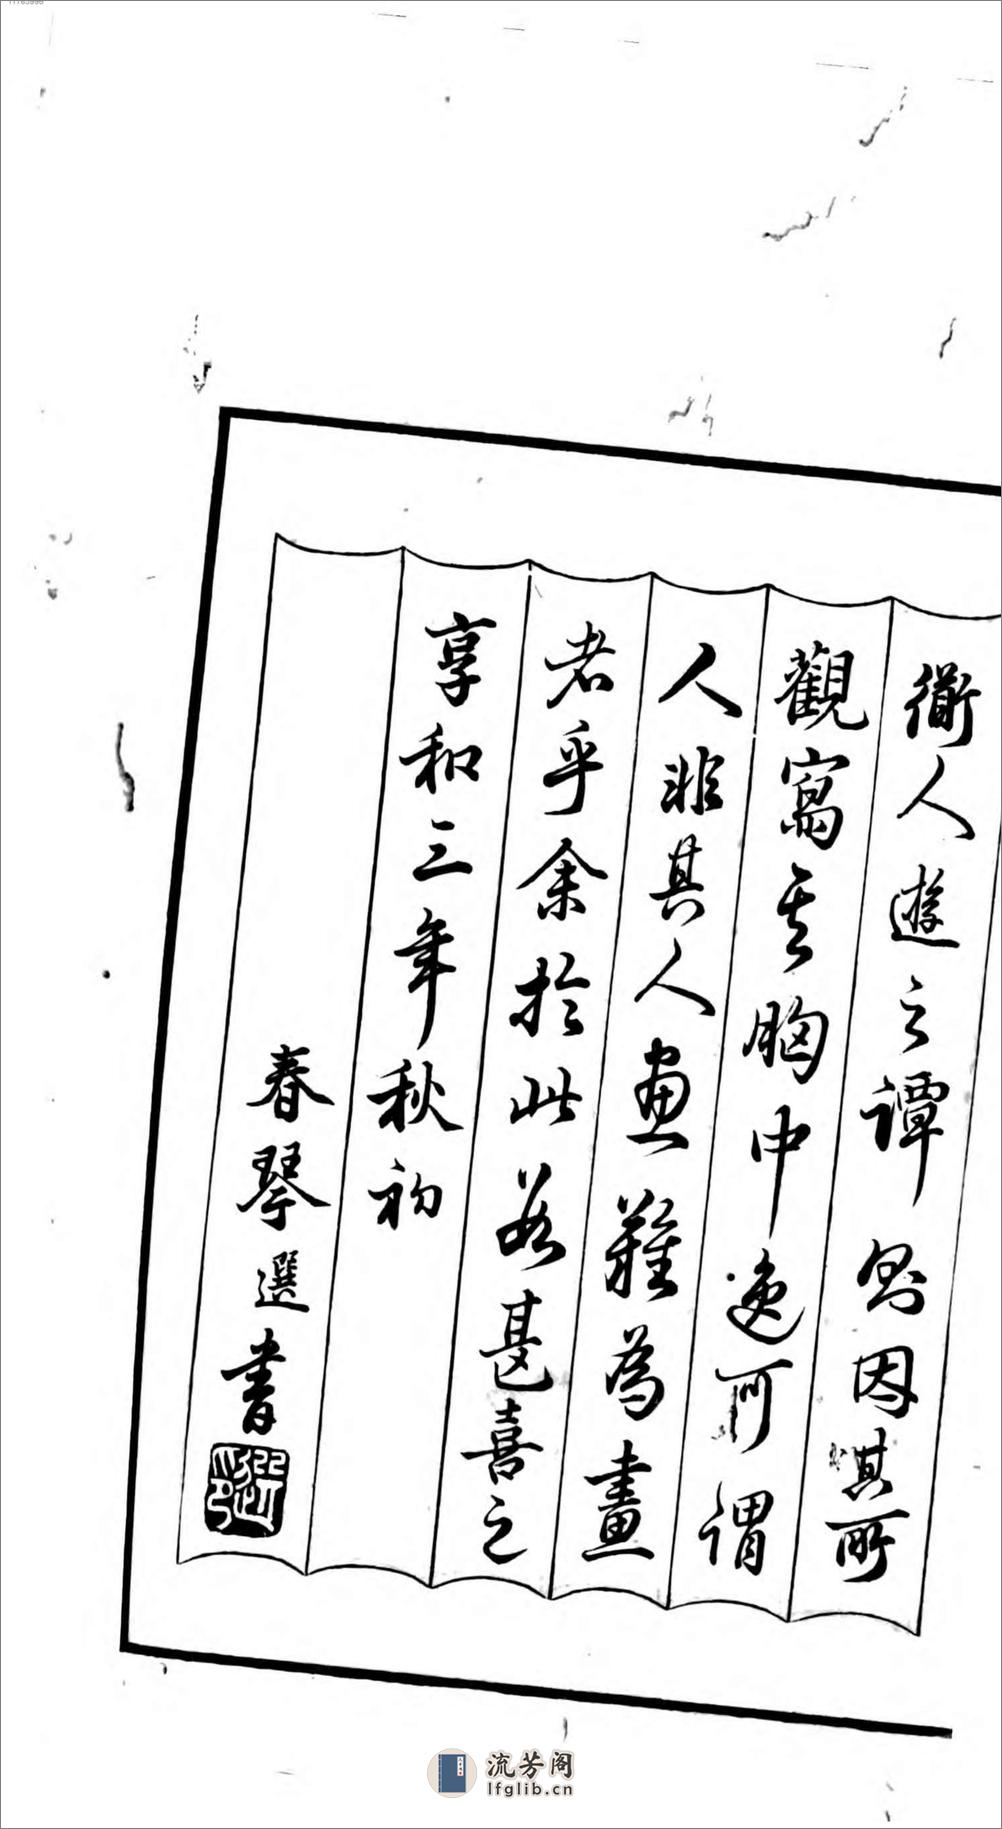 衞人遊之譚則因其所
觀寫其胸中逸可謂
人非其人畫難為畫
者乎余於此卷甚喜之
享和三年秋初
春琴選書
流芳阁
lfglib.cn